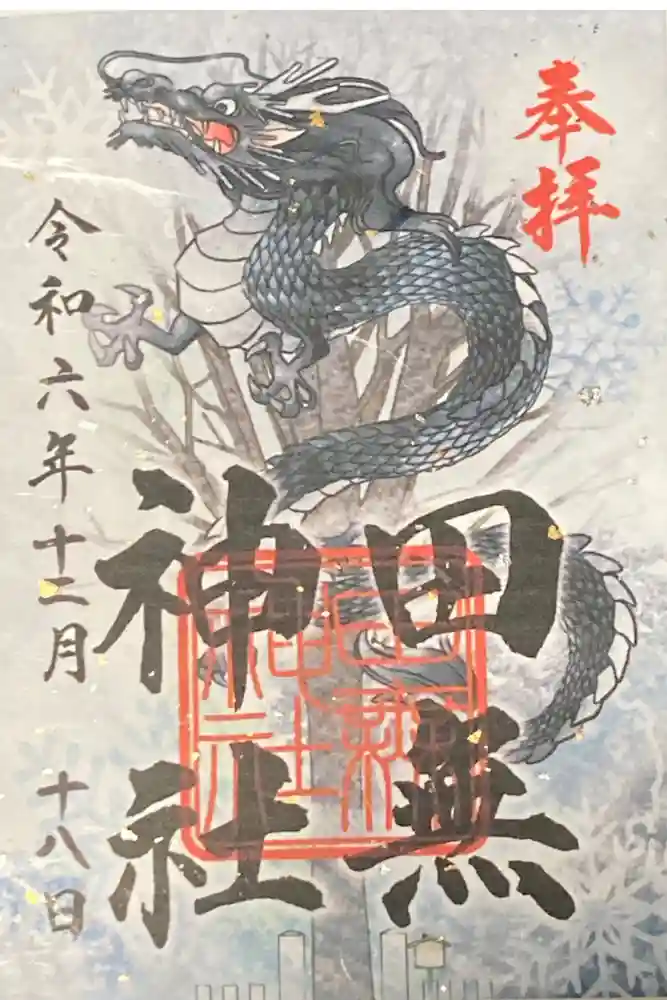 奉拝
田無
神社
令和六年十二月 十八日
田無
神社